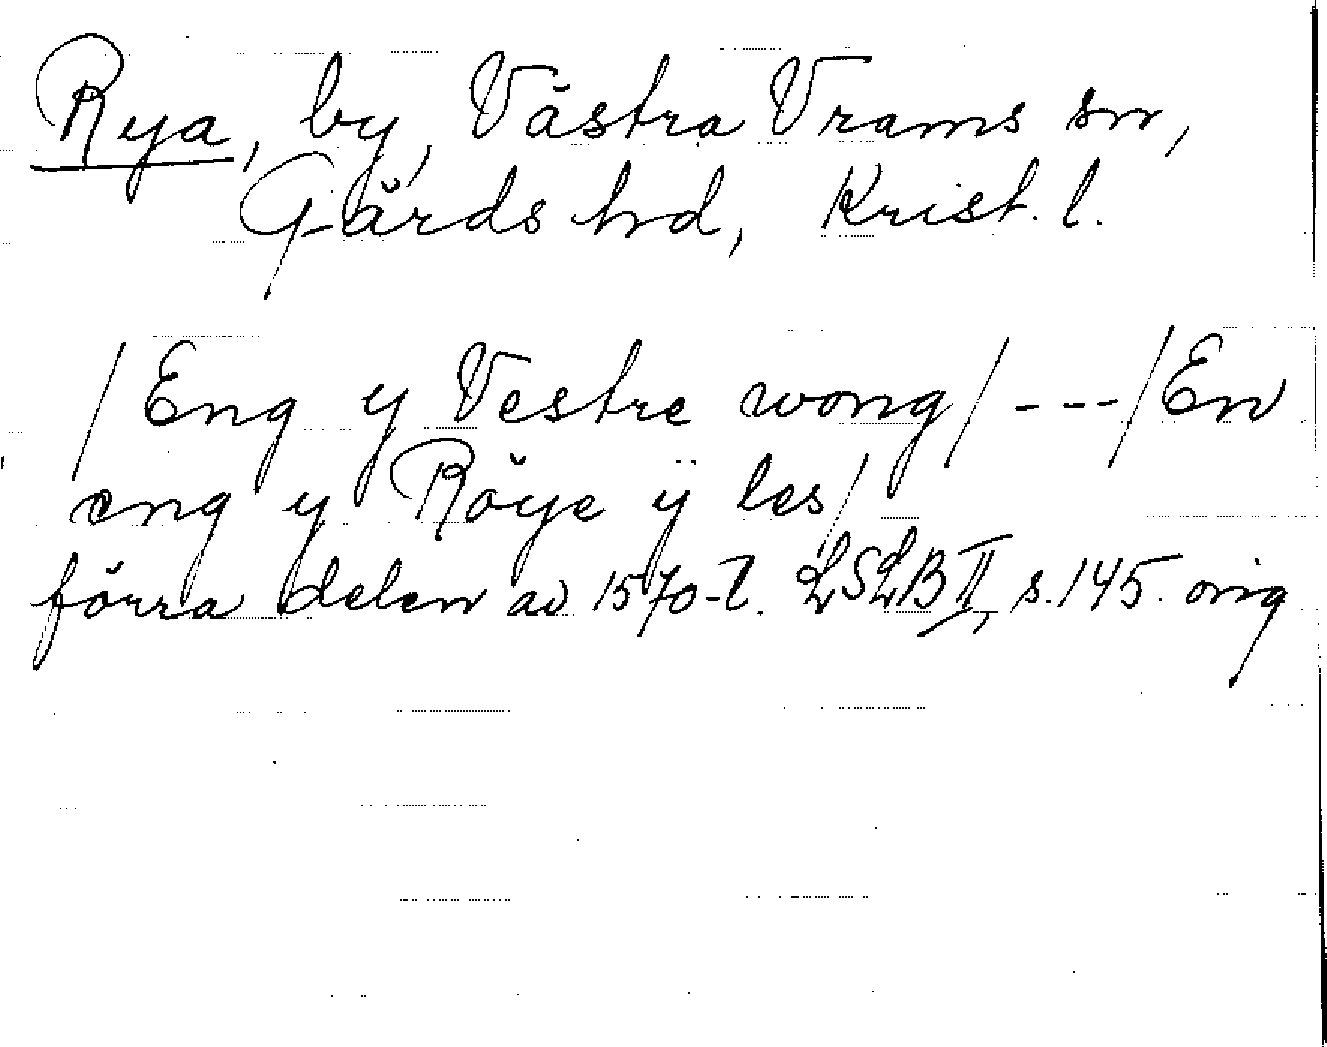 Rya, by, Västra Vrams sn,
Gärds hd, Krist. l.
/Eng y Vestre wong/---/En
eng y Röye ÿ les/
förra delen av 1570-t. LSLB II, s. 145. orig